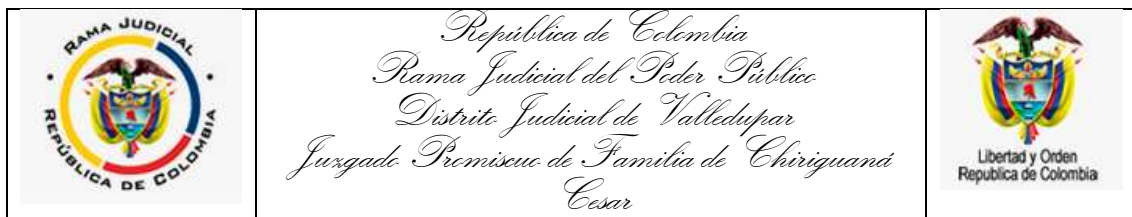 RAMA JUDICIAL
REPÚBLICA DE COLOMBIA
República de Colombia
Rama Judicial del Poder Público
Distrito Judicial de Valledupar
Juzgado Promiscuo de Familia de Chiriguaná
Cesar
Libertad y Orden
Republica de Colombia